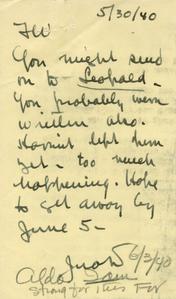 5/30/40
FW
You might send
on to Leopold.
You probably were
written also.
Haven't left here
yet - too much
happening. Hope
to get away by
June 5 -
6/3/40
Aldo
Strong for this